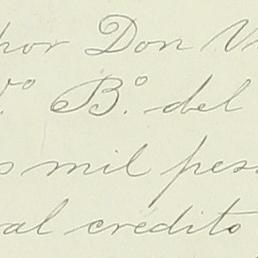 por Don
V.º B.º del
mil pes
al crédito